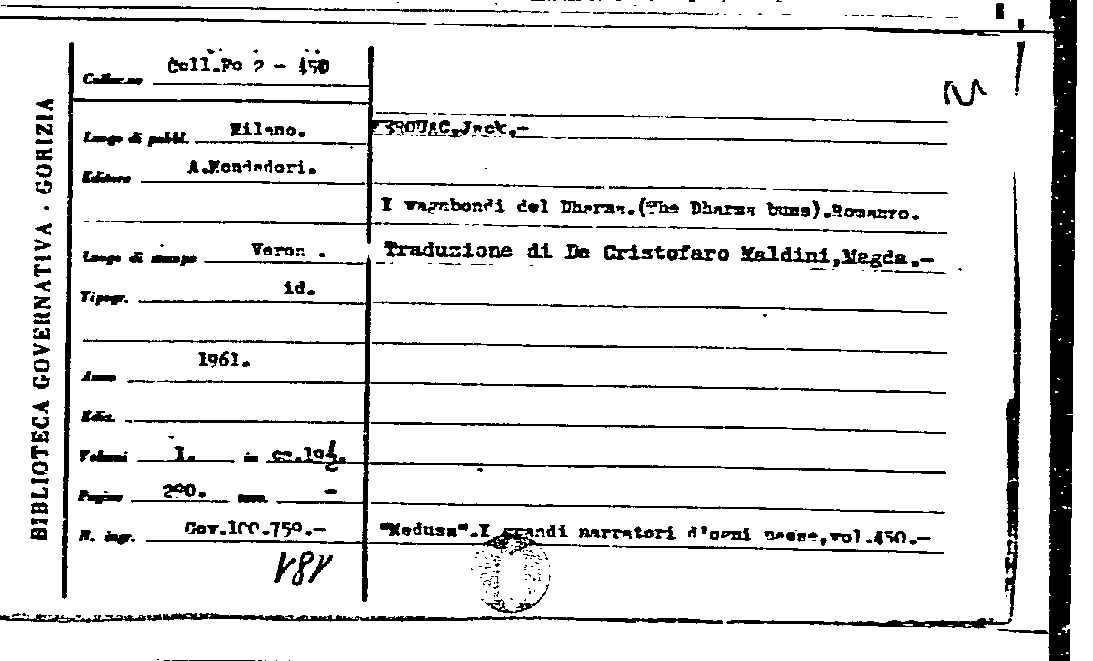 BIBLIOTECA GOVERNATIVA . GORIZIA
Collocaz. Coll.Po 2 - 450
Luogo di pubbl. Milano.
KEROUAC,Jack.-
Editore A.Mondadori.
I vagabondi del Dharma.(The Dharma bums).Romanzo.
Luogo di stampa Verona.
Traduzione di De Cristofaro Maldini,Magda.-
Tipogr. id.
Anno 1961.
Ediz.
Volumi 1. in
Pagine 290. tavv. -
N. ingr.
"Medusa".I grandi narratori d'ogni paese,vol.450.-